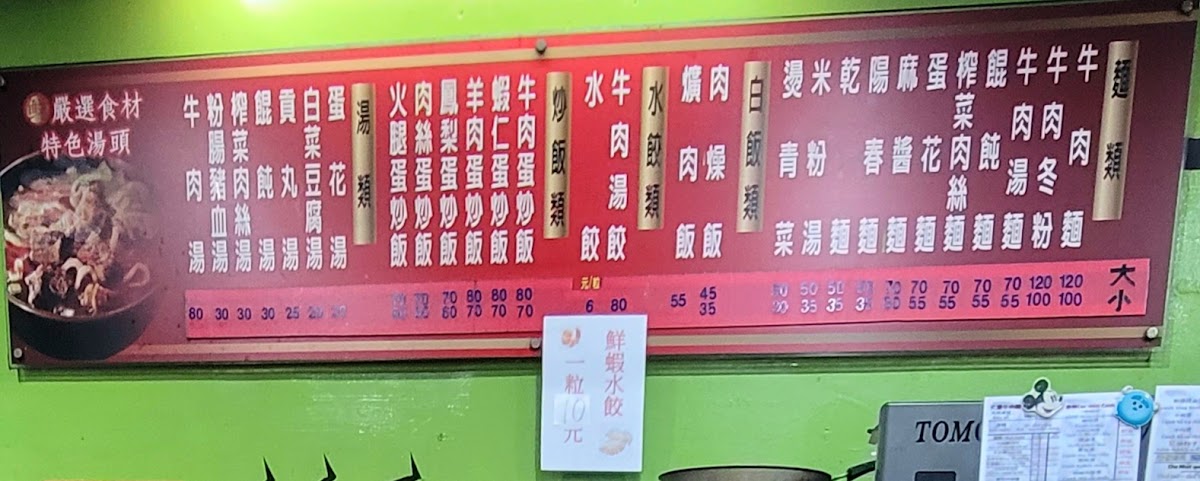 嚴選食材
特色湯頭
麵類
大
小
牛肉麵
120
100
牛肉冬粉
120
100
牛肉湯麵
70
55
餛飩麵
70
55
榨菜肉絲麵
70
55
蛋花麵
70
55
麻醬麵
陽春麵
乾麵
50
35
米粉湯
50
35
燙青菜
白飯類
肉燥飯
45
35
爌肉飯
55
水餃類
牛肉湯餃
80
水餃
元/粒
6
炒飯類
牛肉蛋炒飯
80
70
蝦仁蛋炒飯
80
70
羊肉蛋炒飯
80
70
鳳梨蛋炒飯
70
60
肉絲蛋炒飯
火腿蛋炒飯
湯類
蛋花湯
白菜豆腐湯
貢丸湯
25
餛飩湯
30
榨菜肉絲湯
30
粉腸豬血湯
30
牛肉湯
80
鮮蝦水餃
一粒10元